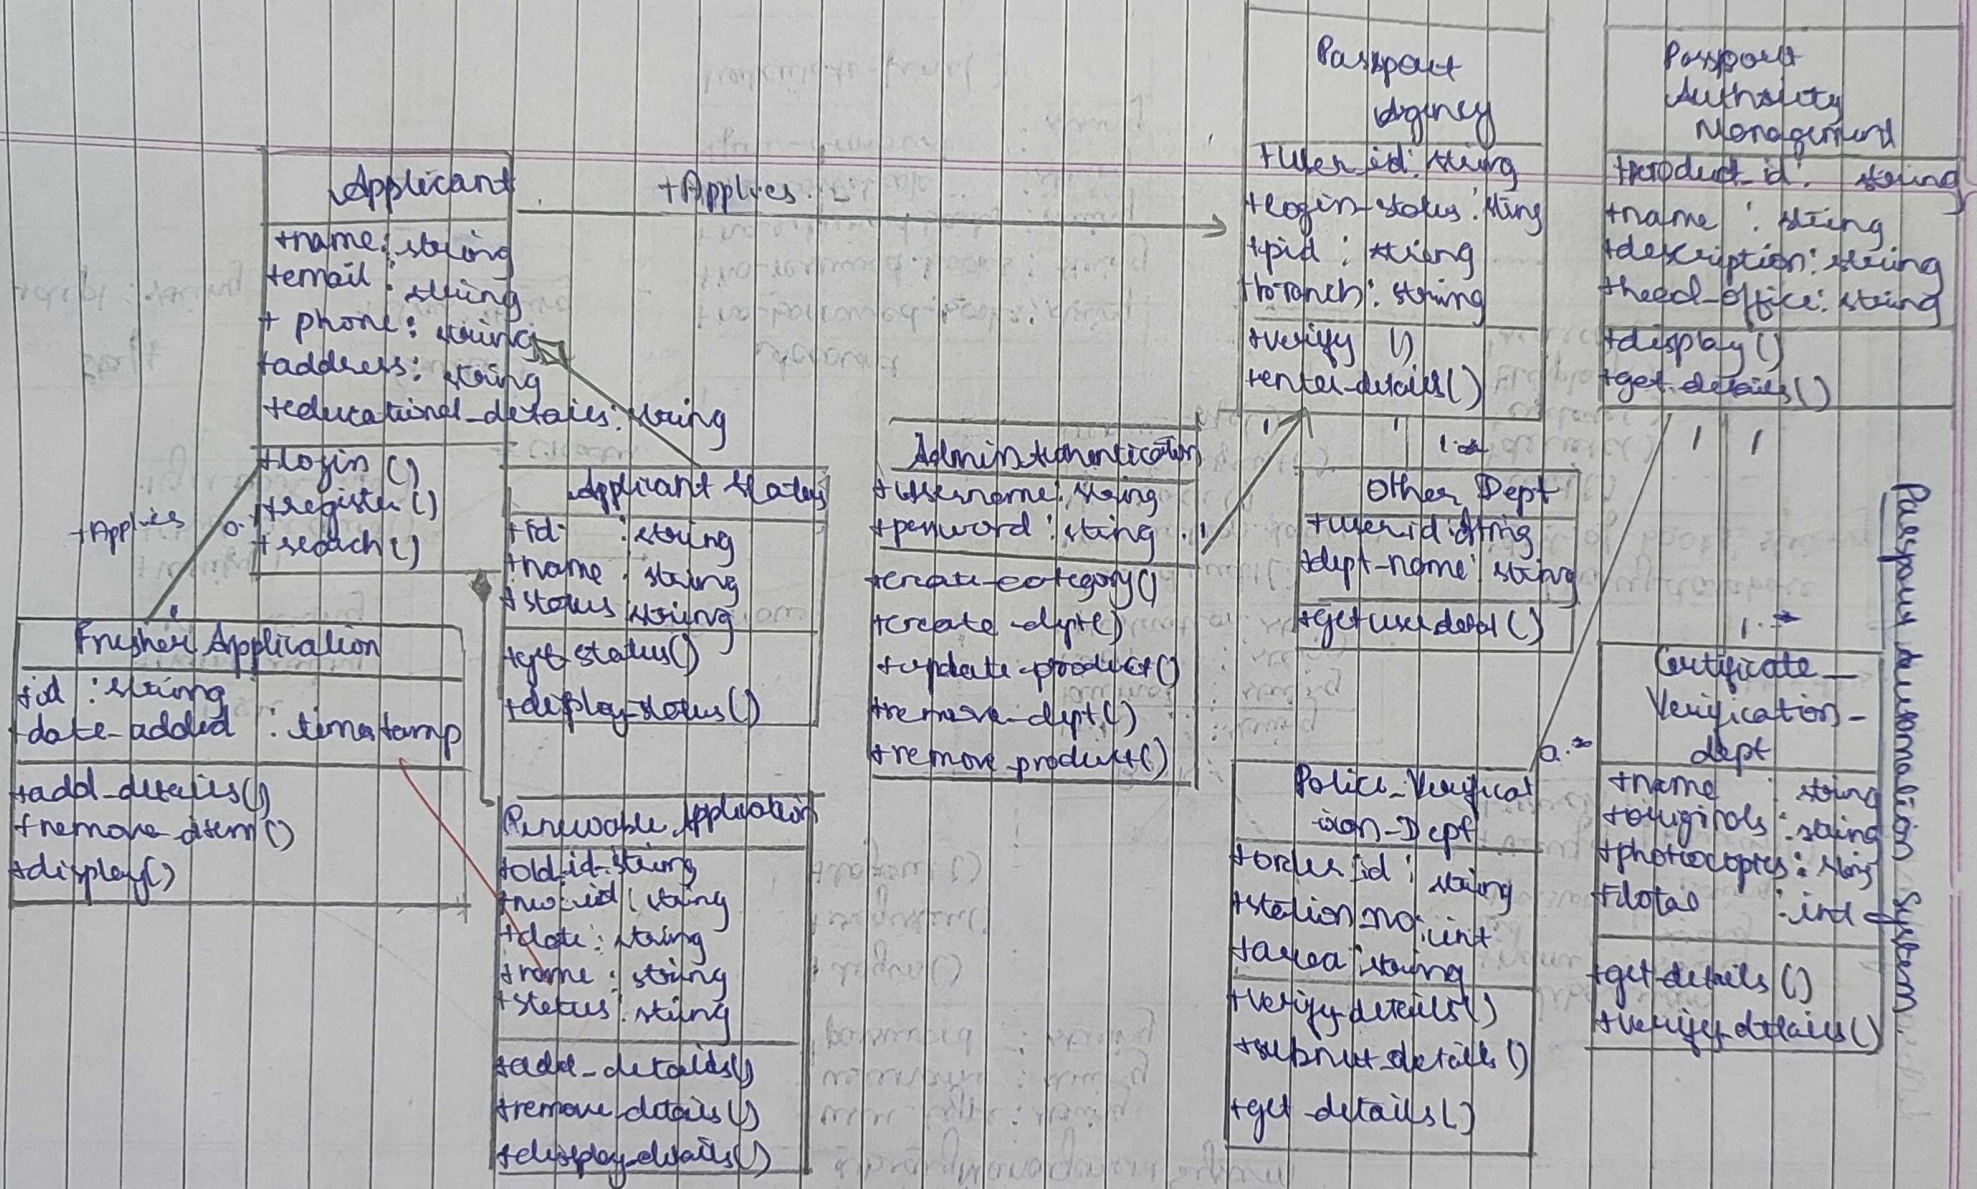 Applicant
+name: string
+email: string
+ phone: string
+address: string
+educational_details: string
+login ()
+register()
+search()
+Applies
+Applies
0..
1
Fresher Application
+id : string
+date-added : timestamp
+add-details()
+remove-item()
+display()
Applicant Status
+id : string
+name : string
+status : string
+get-status()
+display-status()
Renewable Application
+old-id-string
+new-id : string
+date : string
+name : string
+status : string
+add-details()
+remove-details()
+display-details()
Admin Authentication
+username: string
+password : string
+create-category()
+create-dept()
+update-product()
+remove-dept()
+remove-product()
1
Passport
Agency
+user id: string
+login-status: string
+pid : string
+branch: string
+verify ()
+enter-details()
1
1
1..*
Other Dept
+user id: string
+dept-name: string
+get user detail()
Passport
Authority
Management
+product_id: string
+name : string
+description: string
+head-office: string
+display()
+get-details()
1
1
1..*
0..*
Police-Verificat
ion-Dept
+order id : string
+station no: int
+area: string
+verify-details()
+submit-details()
+get-details()
Certificate_
Verification-
dept
+name : string
+originals : string
+photocopies : string
+total : int
+get-details()
+verify-details()
Passport Automation System